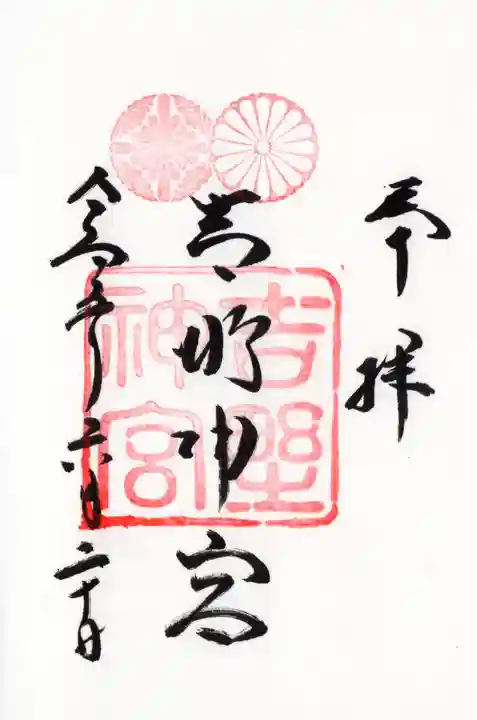 奉拝
吉野神宮
吉野神宮
令和五年六月二十日